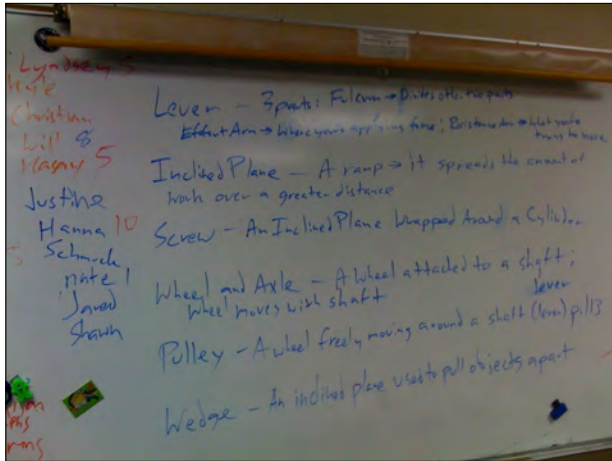 Lyndsey 5
Kyle
Christian
Will 8
Hagay 5
Justine
Hanna 10
Schmuck
nate 1
Jared
Shawn
Lever - 3 parts: Fulcrum → Divides other two parts
Effort Arm → Where you're applying force; Resistance Arm → What you're trying to move
Inclined Plane - A ramp → it spreads the amount of
work over a greater distance
Screw - An Inclined Plane Wrapped Around a Cylinder
Wheel and Axle - A Wheel attached to a shaft;
Wheel moves with shaft
lever
Pulley - A wheel freely moving around a shaft (lever)
Wedge - An inclined plane used to pull objects apart